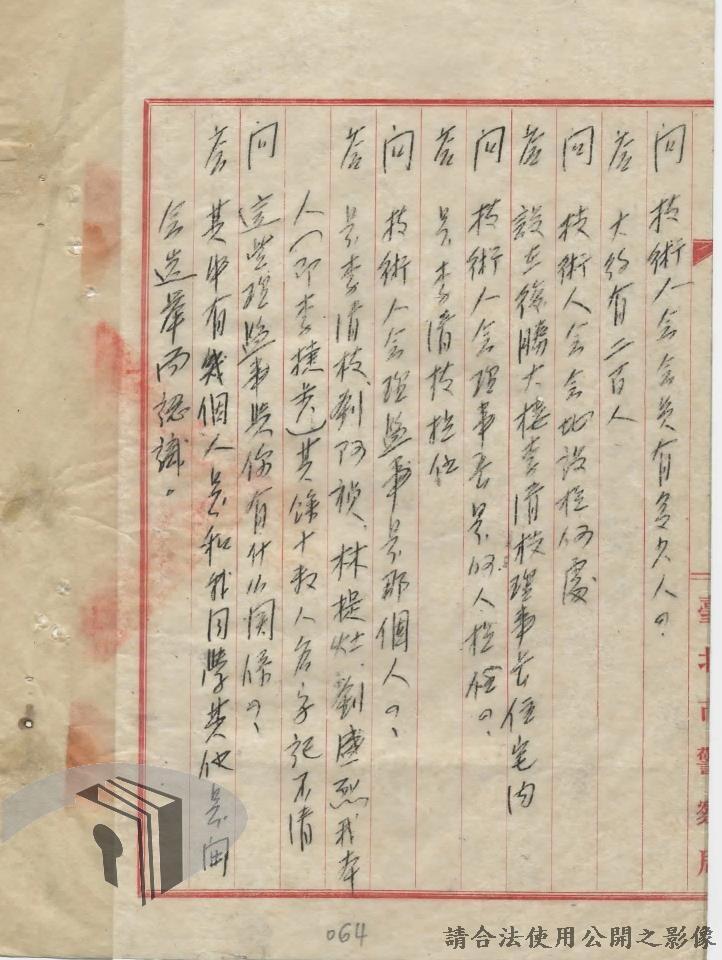 問　技術人会会員有多少人？
答　大約有二百人
問　技術人会会址設在何處
答　設在復勝大樓李清枝理事長住宅內
問　技術人会理事長是何人担任？
答　是李清枝担任
問　技術人会理監事是那個人？
答　是李清枝、劉阿禎、林提灶、劉盛烈我本
人（即李 ）其餘十数人名字記不清
問　這些理監事與你有什么関係？
答　其中有幾個人是和我同學其他是開
会選舉而認識。
臺北市警察局
064
請合法使用公開之影像